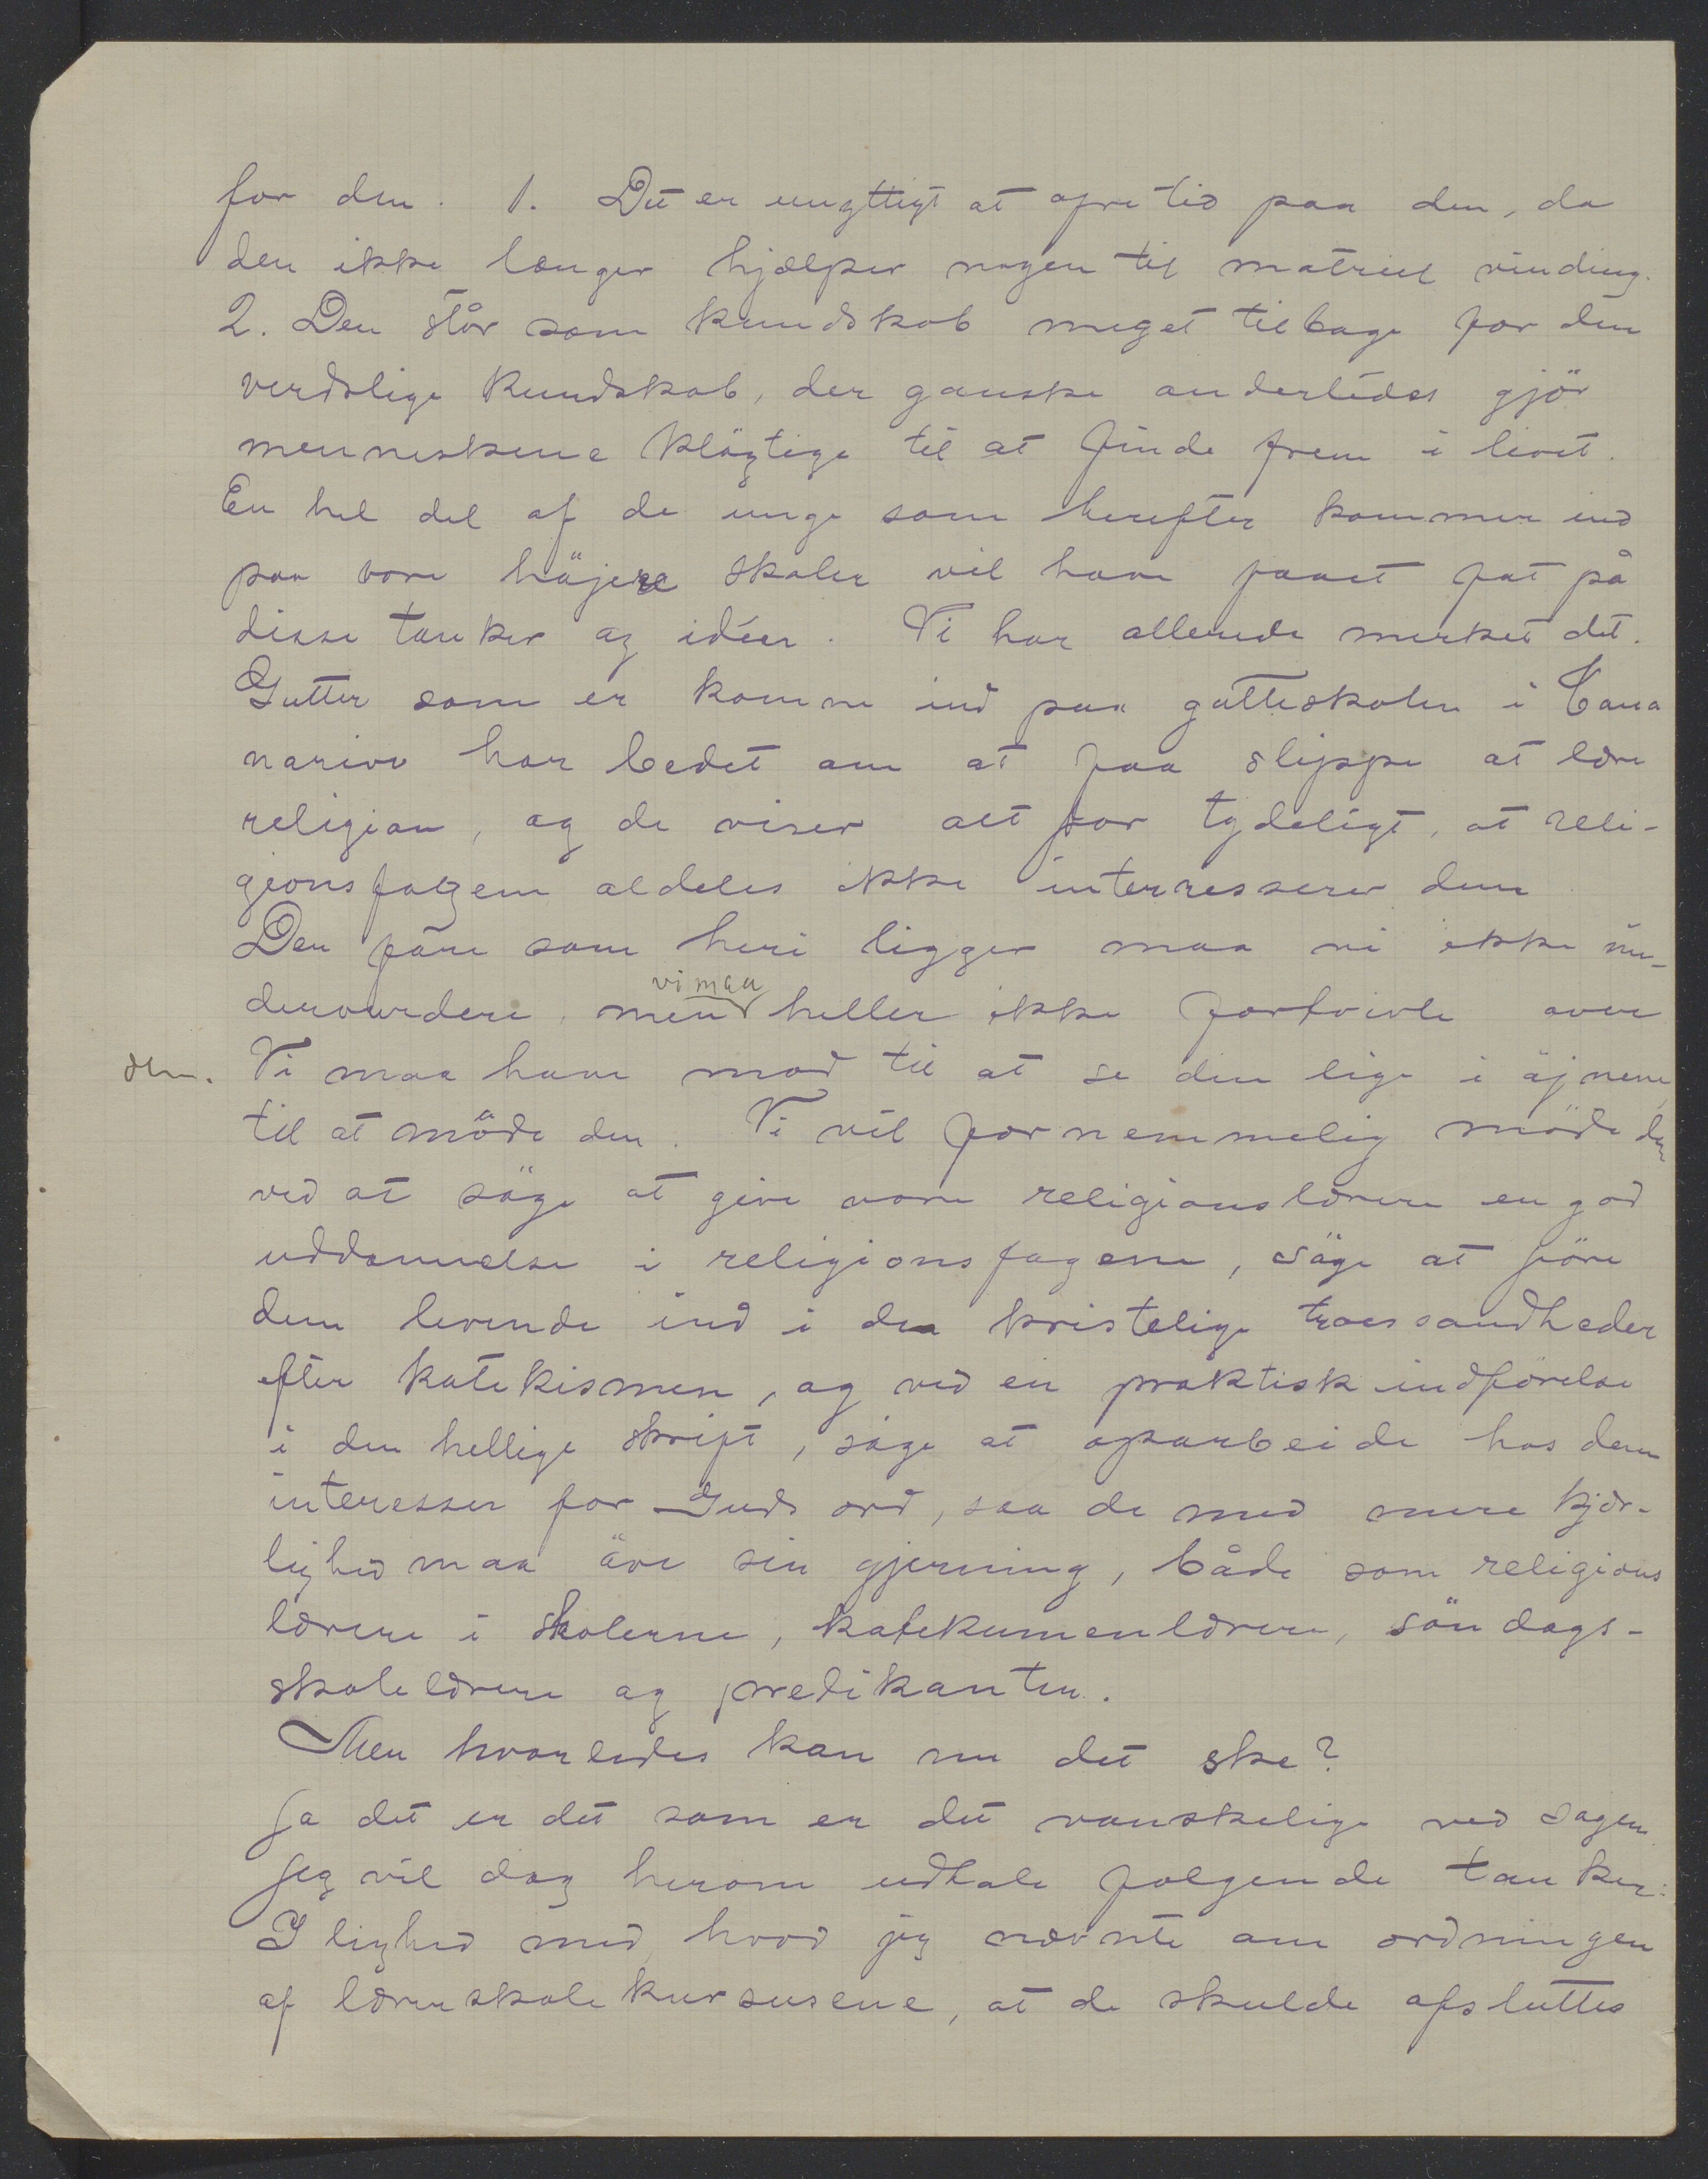 for den. 1. Det er unyttigt at ofre tid paa den, da
den ikke længer hjælper nogen til matriel vinding.
2. Den står som kundskab meget tilbage for den
verdslige kundskab, der ganske anderledes gjör
menneskene klögtige til at finde frem i livet.
En hel del af de unge som herefter kommer ind
paa vore höjere skoler vil have faaet fat på
disse tanker og idéer. Vi har allerede merket det.
Gutter som er komne ind paa gutteskolen i Tana
narivo har bedet om at faa slippe at lære
religion, og de viser alt for tydeligt, at reli-
gionsfagene aldeles ikke interresserer dem
Den fare som heri ligger maa vi ikke un-
dervurdere, men vi maa heller ikke fortvivle over
den. Vi maa have mod til at se den lige i öjnene,
til at möde den. Vi vil fornemmelig möde den
ved at söge at give vore religionslærere en god
uddannelse i religionsfagene, söge at före
dem levende ind i de kristelige troessandheder
efter katekismen, og ved en praktisk indförelse
i den hellige skrift, söge at oparbeide hos dem
interesser for Guds ord, saa de med mere kjær-
lighed maa öve sin gjerning, både som religions
lærere i skolerne, katekumenlærere, söndags-
skolelærere og predikanter.
Men hvorledes kan nu det ske?
Ja det er det som er det vanskelige ved sagen.
Jeg vil dog herom udtale folgende tanker:
I lighed med hvad jeg nævnte om ordningen
af lærerskolekursusene, at de skulde afsluttes